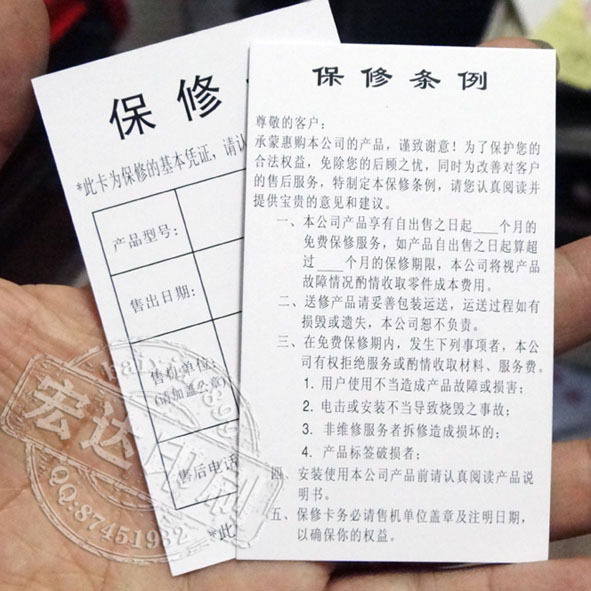 保修
*此卡为保修的基本凭证,请认
产品型号:
售出日期:
售机单位:
(须加盖公章)
售后电话
*此
保修条例
尊敬的客户:
承蒙惠购本公司的产品，谨致谢意！为了保护您的
合法权益，免除您的后顾之忧，同时为改善对客户
的售后服务，特制定本保修条例，请您认真阅读并
提供宝贵的意见和建议。
一、本公司产品享有自出售之日起____个月的
免费保修服务，如产品自出售之日起算超
过____个月的保修期限，本公司将视产品
故障情况酌情收取零件成本费用。
二、送修产品请妥善包装运送，运送过程如有
损毁或遗失，本公司恕不负责。
三、在免费保修期内，发生下列事项者，本公
司有权拒绝服务或酌情收取材料、服务费。
1. 用户使用不当造成产品故障或损害;
2. 电击或安装不当导致烧毁之事故;
3. 非维修服务者拆修造成损坏的;
4. 产品标签破损者;
四、安装使用本公司产品前请认真阅读产品说
明书。
五、保修卡务必请售机单位盖章及注明日期，
以确保你的权益。
宏达印刷
QQ:87451982